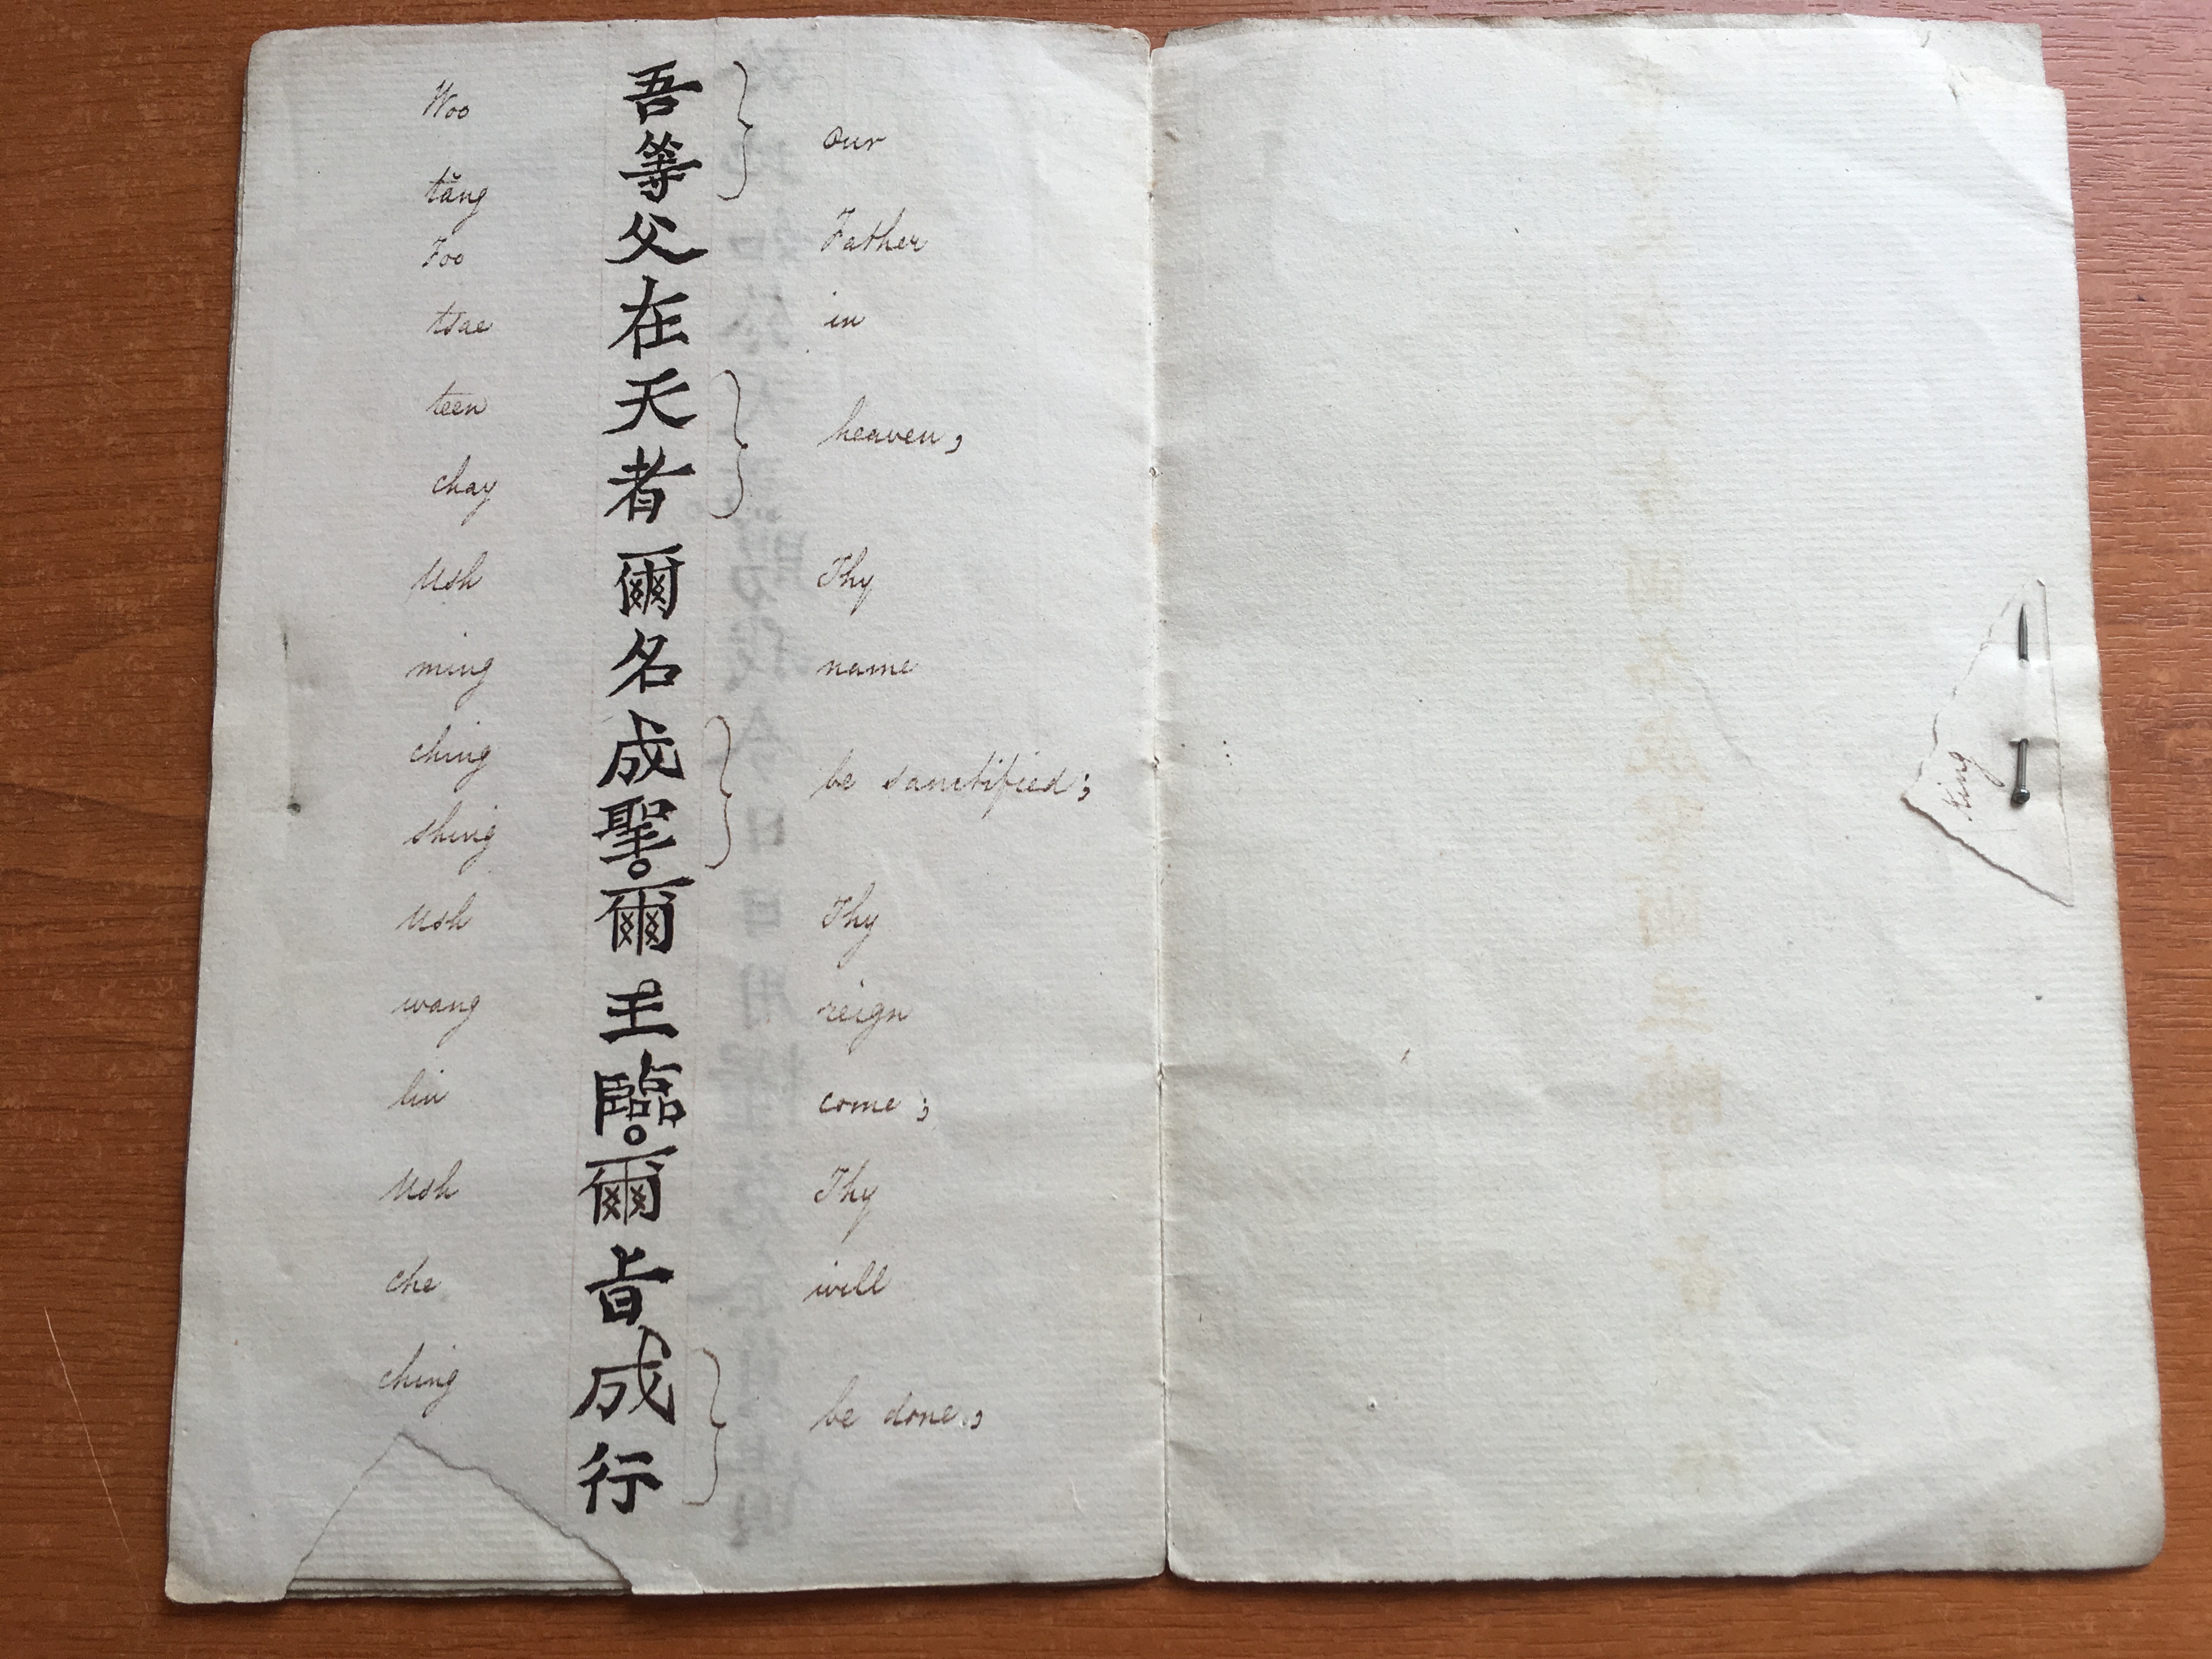 Woo 吾
等 our
tăng
Foo 父 Father
tsae 在 in
teen 天
heaven,
chay 者
Ush 爾 Thy
ming 名 name
ching 成
be sanctified;
shing 聖。
Ush 爾 Thy
wang 王 reign
lin 臨。 come;
Ush 爾 Thy
che 旨 will
ching 成
be done,
行